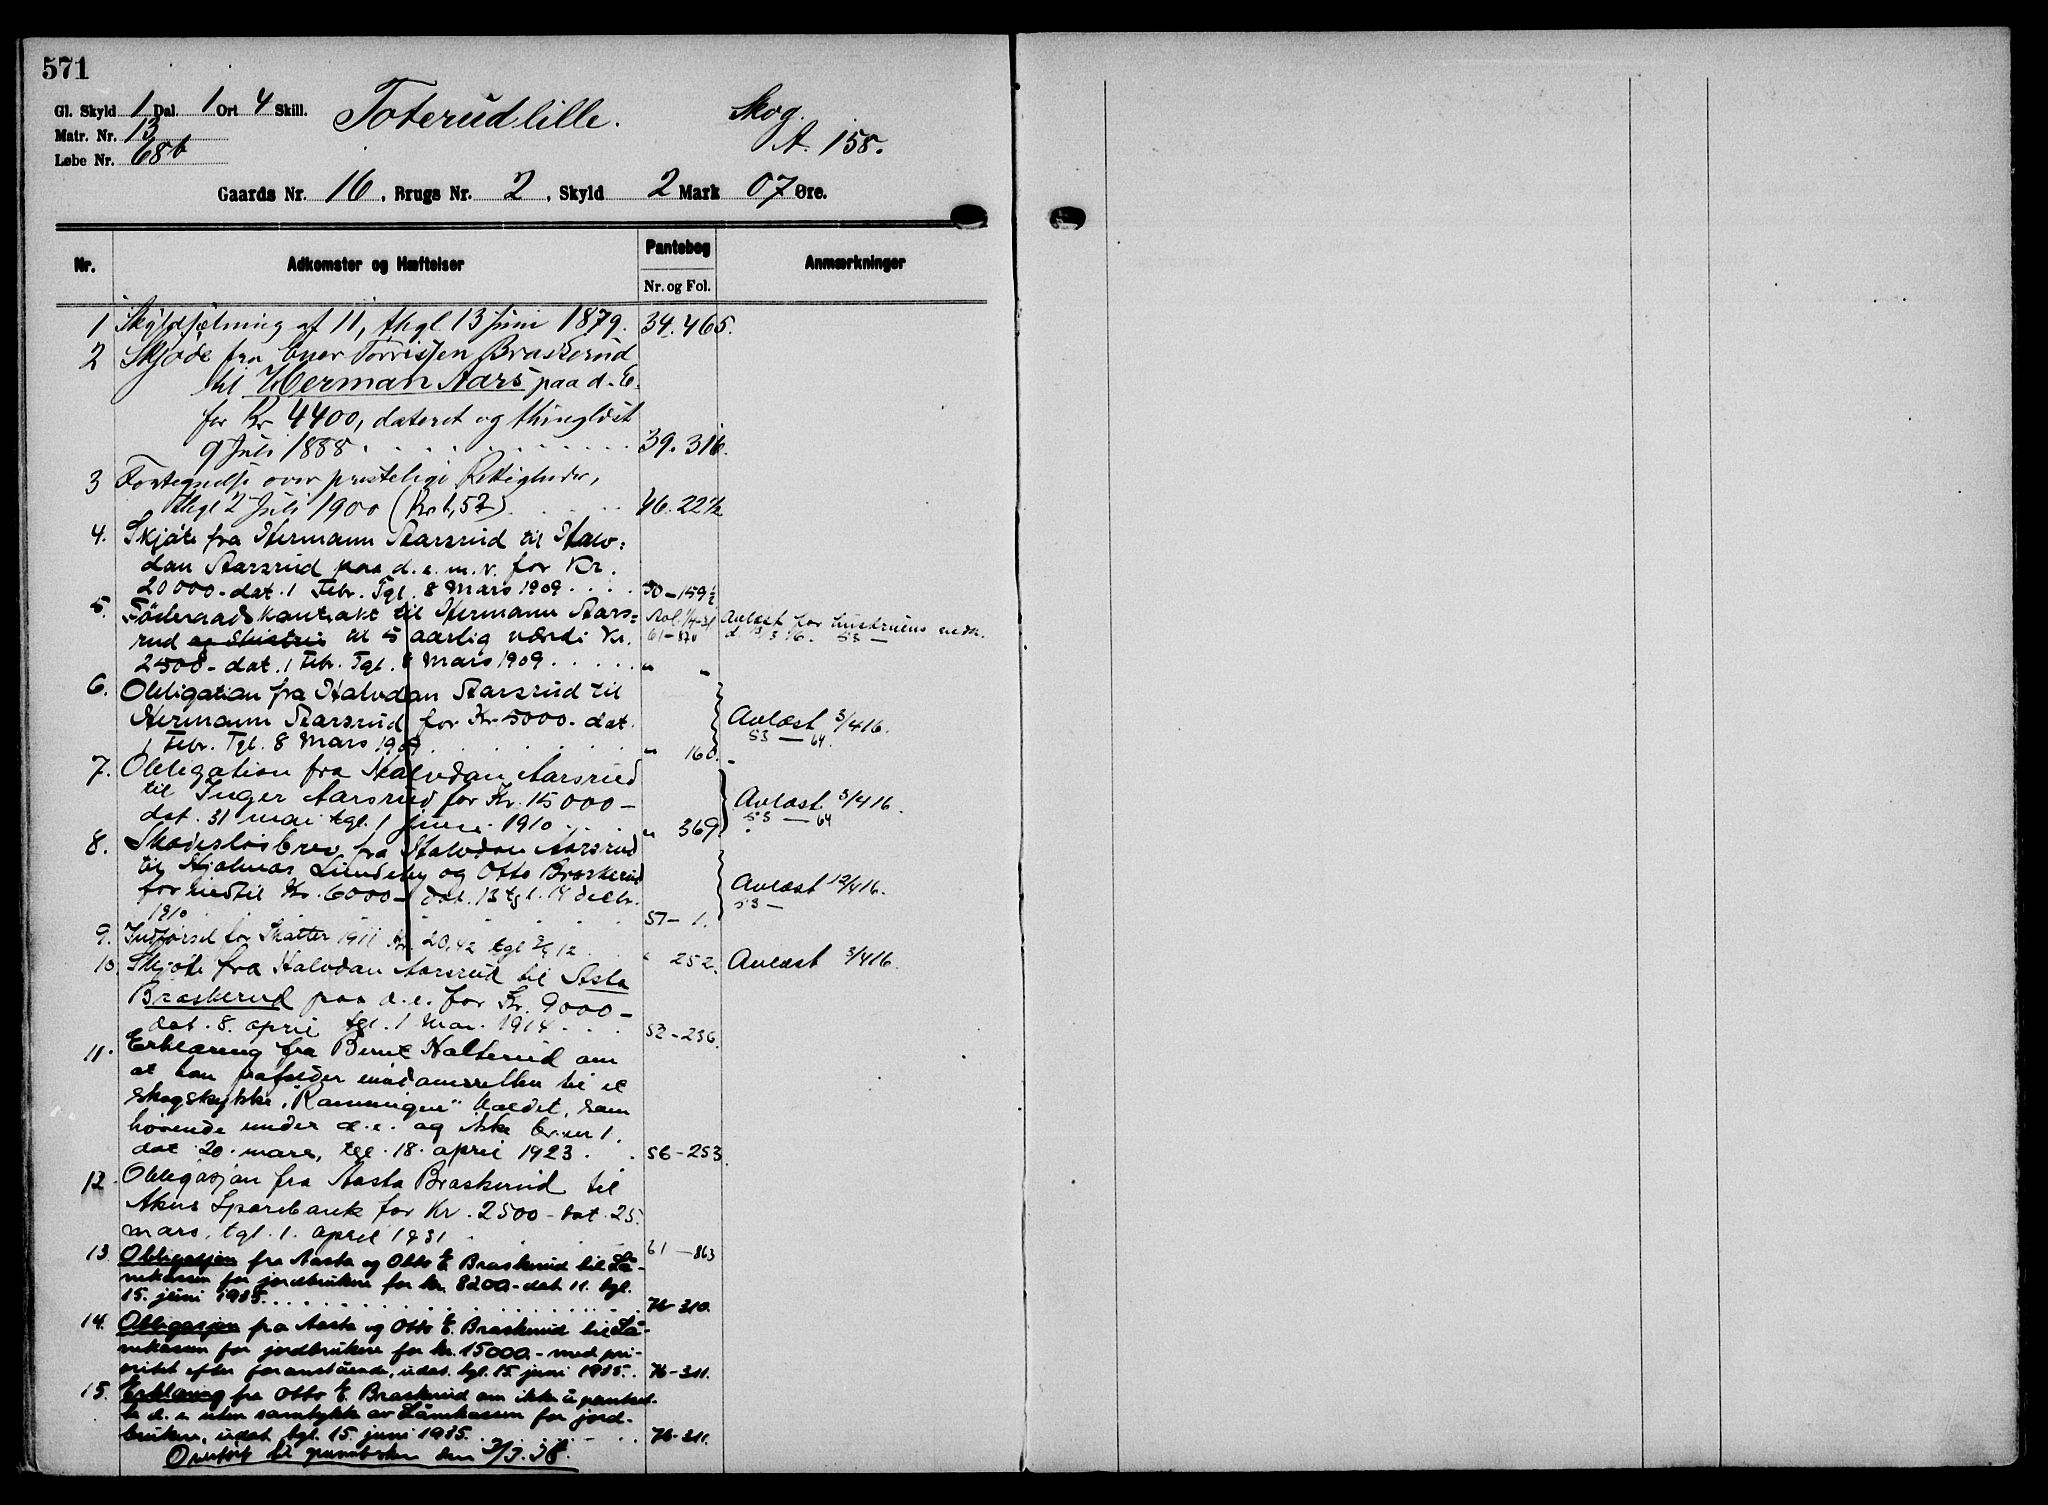 571
Gl. Skyld 1 Dal. 1 Ort 4 Skill.
Matr. Nr. 13
Løbe Nr. 68b
Toterud lille.
Skog.
A. 158.
Gaards Nr. 16, Brugs Nr. 2, Skyld 2 Mark 07 Øre.
Nr. Adkomster og Hæftelser Pantebog Nr. og Fol. Anmærkninger
1 Skyldsætning af 11, thgl 13 Juni 1879. 34. 465.
2 Skjøde fra Torrissen Braskerud
til Herman Aars paa d. E.
for Kr 4400, dateret og thinglæst
9 Juli 1888 39. 316.
3 Fortegnelse over prestelige Rettigheder,
thgl 2 Juli 1900 46. 22½
4. Skjøte fra Hermann Aarsrud til Halv-
dan Aarsrud paa d. e. m. v. for Kr.
20000 - dat. 1 Febr. Tgl. 8 Mars 1909 50-159½
5. Føderaadskontrakt til Hermann Aars-
rud og Hustru til 5 aarlig værdi Kr.
2500 - dat. 1 Febr. Tgl. 8 Mars 1909 " "
61-870
Avlæst for hustruens vedk.
6. Obligation fra Halvdan Aarsrud til
Hermann Aarsrud for Kr 5000 - dat.
1 Febr. Tgl. 8 Mars 1909 " 160. Avlæst 3/4 16.
53 — 64.
7. Obligation fra Halvdan Aarsrud
til Inger Aarsrud for Kr. 15000 -
dat. 31 mai tgl. 1 juni 1910 " 369. Avlæst 3/4 16.
53 — 64
8. Skadesløsbrev fra Halvdan Aarsrud
til Hjalmar Lundeby og Otto Braskerud
for indtil Kr. 6000 - dat. 13 tgl. 14 decbr.
1910 51- 1. Avlæst 12/4 16.
53 —
9. Indførsel for Skatter 1911 Kr. 20,42 tgl 12 " 252. Avlæst 3/4 16.
10. Skjøte fra Halvdan Aarsrud til Asta
Braskerud paa d. e. for Kr. 9000 -
dat. 8. april tgl. 1 Mai 1914 52-236.
11. Erklæring fra Bernt Halterud om
at han frafalder eiendomsretten til et
skogstykke, "Ramningen" kaldet, som
hørende under d. e. og ikke br.nr 1.
dat 20. mars, tgl. 18. april 1923. 56-253.
12. Obligasjon fra Aasta Braskerud til
Akers Sparebank for Kr. 2500 - dat. 25.
mars, tgl. 1. april 1931 61-863
13. Obligasjon fra Aasta og Otto E. Braskerud til Lå-
nekassen for jordbrukere for kr. 8200 - dat 11. tgl.
15. juni 1935 76-310.
14. Obligasjon fra Aasta og Otto E. Braskerud til Lå-
nekassen for jordbrukere for kr. 15000 - med pri-
oritet efter foranstående, udat. tgl. 15. juni 1935. 76-311.
15. Erklæring fra Otto E. Braskerud om ikke å pantset-
te d. e. uten samtykke av Lånekassen for jord-
brukere, udat. tgl. 15. juni 1935. 76-311.
Overført til grunnboken den 2/3.38.